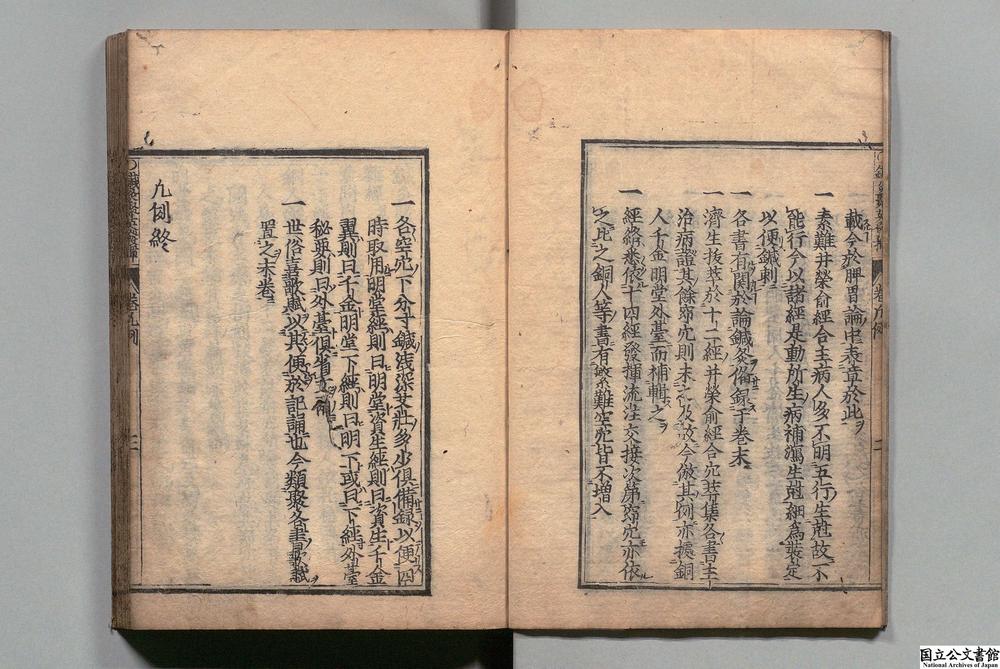 載今於脾胃論中表章於此
一素難井榮俞經合主病人多不明五行生尅故不
能行今以諸經是動所生病補瀉生尅細為裝定
以便鍼刺
一各書有関於論鍼灸俻録于卷末
一濟生拔萃於十二經井榮俞經合穴等集各書主
治病證其餘窌穴則未之及故今倣其例亦摭銅
人千金明堂外臺而補輯之
一經絡悉依十四經發揮流注交接次第窌穴亦依
之比之銅人等書有繁難空穴皆不増入
卷凡例
二
一各空穴下分寸鍼浅深艾壯多少俱備録以便四
時取用明堂經則曰明堂資生經則曰資生千金
翼則曰千金明堂下經則曰明下或曰下經外臺
秘要則曰外臺俱省文佛
一世俗喜歌賦以其便於記誦也今類聚各書歌賦
置之末卷
凡例終
卷凡例
三
国立公文書館
National Archives of Japan